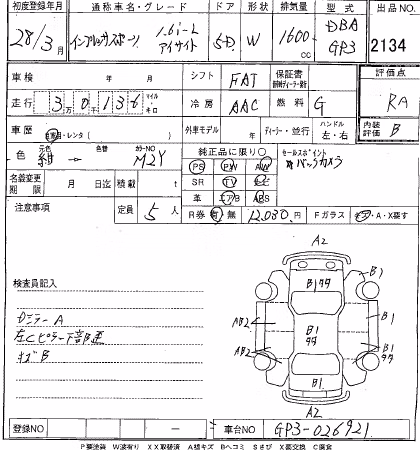 初度登録年月 通称車名・グレード ドア 形状 排気量 型式 出品NO
28/3月 インプレッサスポーツ 1.6i-L アイサイト 5D W 1600cc DBA GP3 2134
車検 年 月 シフト FAT 保証書 評価点
走行 3万0千136 マイル キロ 冷房 AAC 燃料 G RA
車歴 自家用・レンタ( ) 外車モデル 年 ディーラー・並行 ハンドル 左・右 内装評価 B
色 元色 紺 色替 カラーNO M2Y 純正品に限り○ セールスポイント
PS PW AW バックカメラ
名義変更期限 月 日迄 積載 t SR TV ナビ
革 エアB ABS
注意事項 定員 5人 R券 有 無 12,030円 Fガラス ・A・X要す
検査員記入
Dミラー A
左Cピラー下部凹
キズB
A2
B1 B1 B1
AB2 B1
AB2 B1
B1
A2
登録NO 車台NO GP3-026921
P要塗装 W波有り XX取替済 A損キズ Bヘコミ Sさび X要交換 C腐食